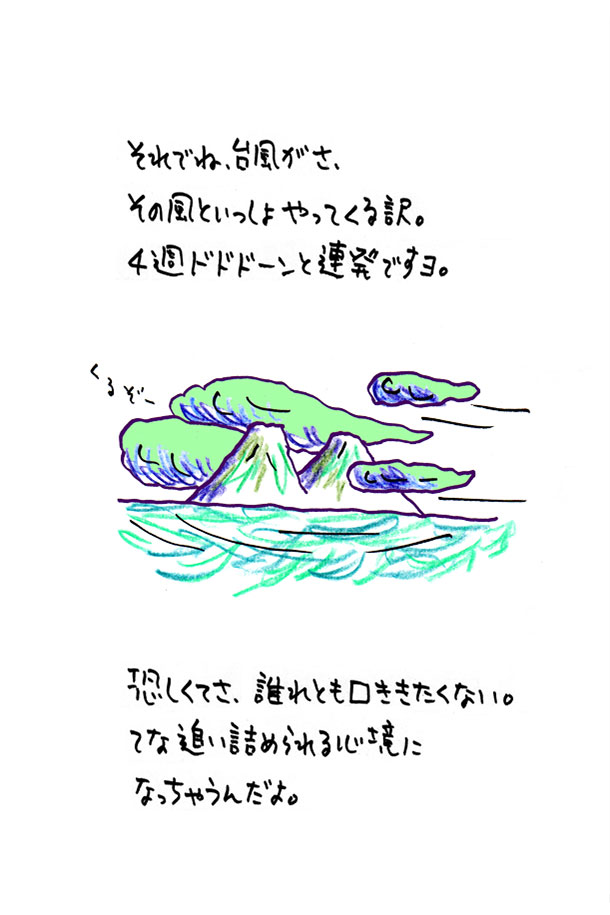 それでね、台風がさ、
その風といっしょやってくる訳。
4週ドドドーンと連発ですヨ。
くるぞー
恐しくてさ、誰れとも口ききたくない。
てな追い詰められる心境に
なっちゃうんだよ。